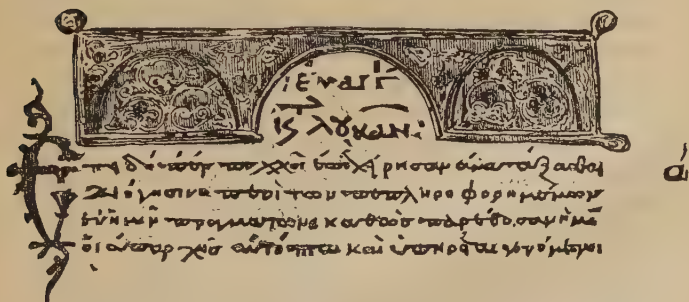 εὐαγγ
λουκαν
Ἐπειδήπερ πολλοὶ ἐπεχείρησαν ἀνατάξασθαι
διήγησιν περὶ τῶν πεπληροφορημένων
ἐν ἡμῖν πραγμάτων καθὼς παρέδοσαν ἡμῖ
οἱ ἀπ' ἀρχῆς αὐτόπται καὶ ὑπηρέται γενόμενοι